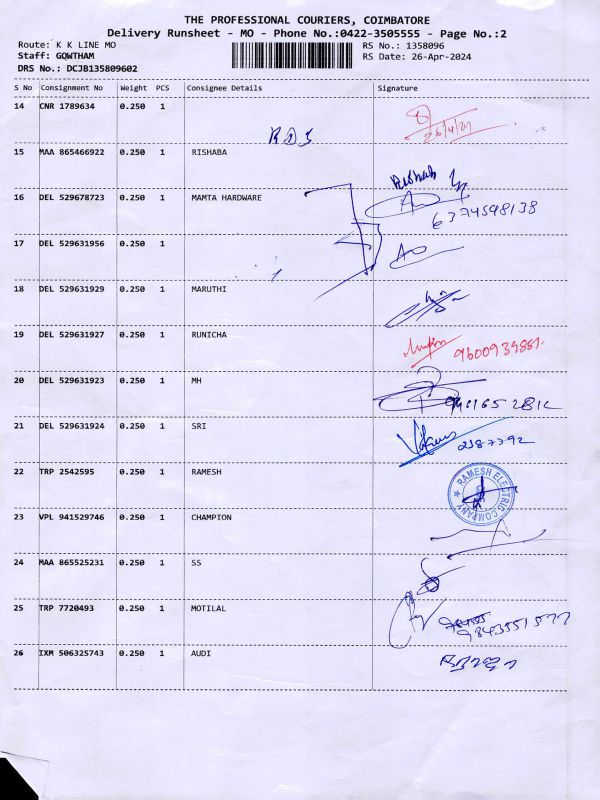 THE PROFESSIONAL COURIERS, COIMBATORE
Delivery Runsheet - MO - Phone No.:0422-3505555 - Page No.:2
Route: K K LINE MO RS No.: 1358096
Staff: GOWTHAM RS Date: 26-Apr-2024
DRS No.: DCJB135809602
S No Consignment No Weight PCS Consignee Details Signature
14 CNR 1789634 0.250 1
26/4/24
RDS
15 MAA 865466922 0.250 1 RISHABA
Rishab
16 DEL 529678723 0.250 1 MAMTA HARDWARE
6374598138
17 DEL 529631956 0.250 1
18 DEL 529631929 0.250 1 MARUTHI
19 DEL 529631927 0.250 1 RUNICHA
9600939881
20 DEL 529631923 0.250 1 MH
21 DEL 529631924 0.250 1 SRI
2387792
22 TRP 2542595 0.250 1 RAMESH
RAMESH ELECTRIC COMPANY
23 VPL 941529746 0.250 1 CHAMPION
24 MAA 865525231 0.250 1 SS
25 TRP 7720493 0.250 1 MOTILAL
9843551577
26 IXM 506325743 0.250 1 AUDI